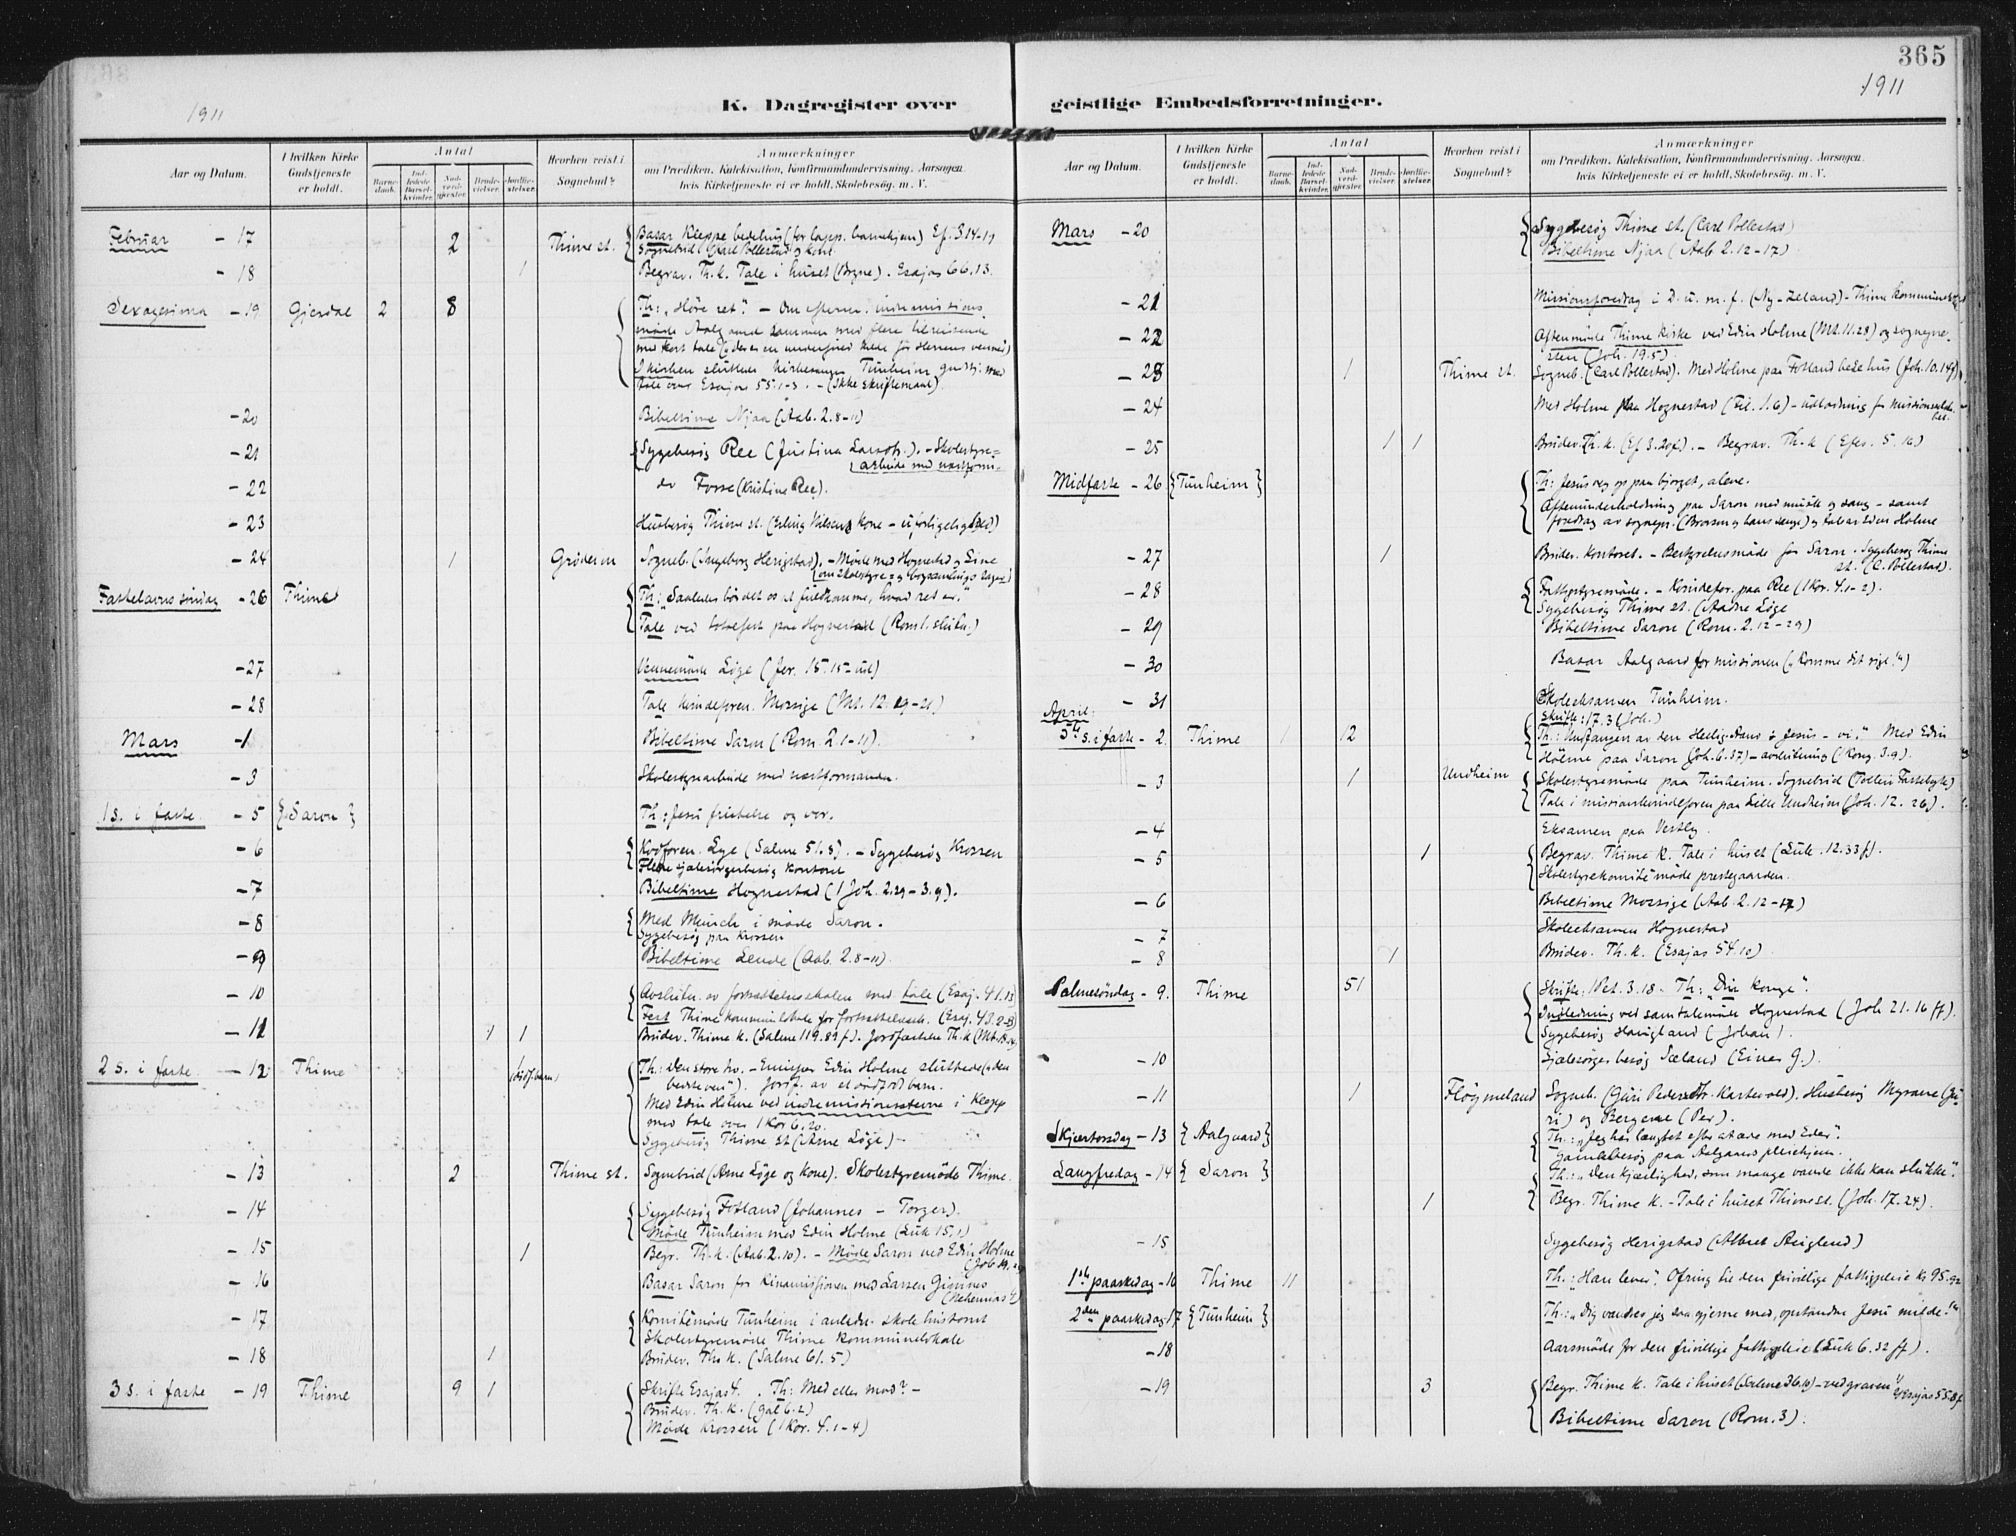 365
1911
1911
K. Dagregister over
geistlige Embedsforretninger.
Aar og Datum.
I hvilken Kirke Gudstjeneste er holdt.
Antal
Barne-daab.
Ind-ledede Barsel-kvinder.
Nad-verd-gjæster.
Brude-vielser.
Jordfæ-stelser.
Hvorhen reist i Sognebud?
Anmærkninger
om Prædiken, Katekisation, Konfirmandundervisning, Aarsagen,
hvis Kirketjeneste ei er holdt, Skolebesøg. m. V.
Februar - 17 2 Thime st. Basar Kleppe bedehus (for barnehjem) Ef. 3.14-19
Sognebud (Carl Pollestad og kone
- 18 1 Begrav. Th. k. Tale i huset (Bryne). Esajas 66.13.
Sexagesima - 19 Gjesdal 2 8 Th: "Høre ret." - Om efterm. indremissions
møde Aalgaard sammen med flere tilreisende
med kort tale
I kirken sluttede kirkesanger Tunheim gudstj. med
tale over Esajas 55.1-3. - (Ikke skriftemaal).
- 20 Bibeltime Njaa (Aab. 2.8-11)
- 21 Sygebesøg Ree (Justina Larsdtr.). - Skolestyre-
arbeide med næstform.
- 22 do Fosse (Kristine Ree).
- 23 Husbesøg Thime st. (Erling Nilsens kone - uforligelighed)
- 24 1 Grødeim Sogneb. (Ingeborg Herigstad). - Møde med Hognestad og Line
(om skolestyre- og bogsamlings sager)
Fastelavns søndag - 26 Thime Th: "Saaledes bør det os at fuldkomme, hvad ret er."
Tale ved totalfest paa Hognestad (Rom 1. slutn.)
- 27 Vennemøde Løge (Jer. 15.15-ud)
- 28 Tale kvindeforen. Morsige (Mt. 12.19-21)
Mars - 1 Bibeltime Saron (Rom. 2.1-11).
- 3 Skolestyrearbeide med næstformanden.
1 s. i faste. - 5 {Saron} Th: Jesu fristelse og vor.
- 6 Lye (Salme 51.8). - Sygebesøg Krossen
Flere sjælesørgerbesøg kontoret
- 7 Bibeltime Hognestad (1 Joh. 2.29-3.9).
- 8 Med Munch i møde Saron.
Sygebesøg paa Krossen
- 9 Bibeltime Lende (Aab. 2.8-11).
- 10 Avslutn. av fortsættelsesskolen med tale (Esaj. 41.13
Fest Thime kommunelokale for fortsættelsessk. (Esaj. 43.2-3)
- 11 1 1 Brudev. Thime k. (Salme 119.89 f). Jordfæstelse Th. k
2 s. i faste. - 12 Thime (dødf. barn) Th: Den store tro. - Emissær Edin Holme sluttede ("den
bedste ven"). Jordf. av et dødfødt barn.
Med Edin Holme ved indremissionsstevne i Klepp
med tale over 1 Kor 6.20.
Sygebesøg Thime st (Arne Løge) -
- 13 2 Thime st. Sognebud (Arne Løge og kone). Skolestyremøde Thime.
- 14 Sygebesøg Fotland (Johannes - Torger).
Møde Tunheim med Edin Holme (Luk 15.1)
- 15 1 Begr. Th. k. (Aab. 2.10). - Møde Saron ved Edin Holme
- 16 Basar Saron for Kinamissionen med Larsen Gjøvnes
(Nehemias 4)
- 17 Komitémøde Tunheim i anledn. skolehustomt
Skolestyremøde Thime kommunelokale
- 18 1 Brudev. Th. k. (Salme 61.5)
3 s. i faste - 19 Thime 9 1 Skrifte Esajas 4. Th: Med eller mod? -
Brudev. Th. k. (Gal 6.2)
Møde Krossen (1 Kor. 4.1-4)
Aar og Datum.
I hvilken Kirke Gudstjeneste er holdt.
Antal
Barne-daab.
Ind-ledede Barsel-kvinder.
Nad-verd-gjæster.
Brude-vielser.
Jordfæ-stelser.
Hvorhen reist i Sognebud?
Anmærkninger
om Prædiken, Katekisation, Konfirmandundervisning, Aarsagen,
hvis Kirketjeneste ei er holdt, Skolebesøg. m. V.
Mars - 20 Sygebesøg Thime st. (Carl Pollestad)
Bibeltime Njaa (Aab 2.12-17)
- 21 Missionsforedrag i D. u. m. f. (Ny-Zeland) - Thime kommunelok.
- 22 Aftenmøde Thime kirke ved Edin Holme (Mt. 11.28) og sogneprе-
sten (Joh. 19.5).
- 23 1 Thime st. Sogneb. (Carl Pollestad). Med Holme paa Fotland bedehus (Joh. 10.14f)
- 24 Med Holme paa Hognestad (Fil. 1.6) - utlodning f. missionsældebet.
- 25 1 1 Brudev. Th. k. (Ef 3.20f). - Begrav. Th. k (Efes. 5.16)
Midfaste - 26 {Tunheim} Th: Jesus veg op paa bjerget, alene.
Aftenunderholdning paa Saron med musik og sang - samt
foredrag av sognepr. (Brorson og hans sange) og tale av Edin Holme
- 27 1 Brudev. kontoret. - Bestyrelsesmøde for Saron. Sygebesøg Thime
st. (C. Pollestad).
- 28 Fattigstyremøde. - Kvindefor. paa Ree (1 Kor. 4.1-2).
Sygebesøg Thime st. (Andre Løge
- 29 Bibeltime Saron (Rom. 2.12-29)
- 30 Basar Aalgaard for missionen ("Komme dit rige!")
- 31 Skoleeksamen Tunheim.
April: 5te s. i faste - 2. Thime 1 12 Skrifte: 17.3 (Joh.)
Th: Undfangen av den Hellig-Aand: Jesus - vi." Med Edin
Holme paa Saron (Joh. 6.37) - avslutning (1 Kong. 3.9).
- 3 1 Undheim Skolestyremøde paa Tunheim. Sognebud
Tale i missionskvindeforen paa Lille Undheim (Joh. 12.26).
- 4 Eksamen paa Vestly.
- 5 1 Begrav. Thime k. Tale i huset (Luk. 12.33f).
Skolestyrekomitémøde prestegaarden.
- 6 Bibeltime Morsige (Aab. 2.12-17)
- 7 Skoleeksamen Hognestad
- 8 1 Brudev. Th. k. (Esajas 54.10)
Palmesøndag - 9. Thime 51 Skrifte: 1 Pet. 3.18. Th: "Din konge".
Indledning ved samtalemøde Hognestad (Joh 21.16 ff).
Sygebesøg Haugland (Johan).
- 10 Sjælesørgerbesøg Sæland (Einer G.).
- 11 1 Fløgmeland Sogneb. (Guri Pedersdtr. Kartevold). Husbesøg Myrane (Gu-
ri) og Bergene (Per).
Skjærtorsdag - 13 {Aalgaard} Th.: "Jeg har længtet efter at æde med Eder".
Gamlebesøg paa Aalgaards pleiehjem.
Langfredag - 14 {Saron} 1 Th.: "Den kjærlighed, som mange vande ikke kan slukke".
Begr. Thime k. - Tale i huset Thime st. (Joh. 17.24).
- 15 Sygebesøg Herigstad
1ste paaskedag - 16 Thime 11 Th.: "Han lever". Ofring til den frivillige fattigpleie kr 95.92
2den paaskedag - 17 {Tunheim} Th.: "Dig vandrer jeg saa gjerne med, opstandne Jesu milde!"
- 18 Aarsmøde for den frivillige fattigpleie (Luk 6.32 ff).
- 19 3 Begr. Thime k. Tale i huset (Salme 36.10) - ved graven Esajas 55.8f
Bibeltime Saron (Rom. 3).